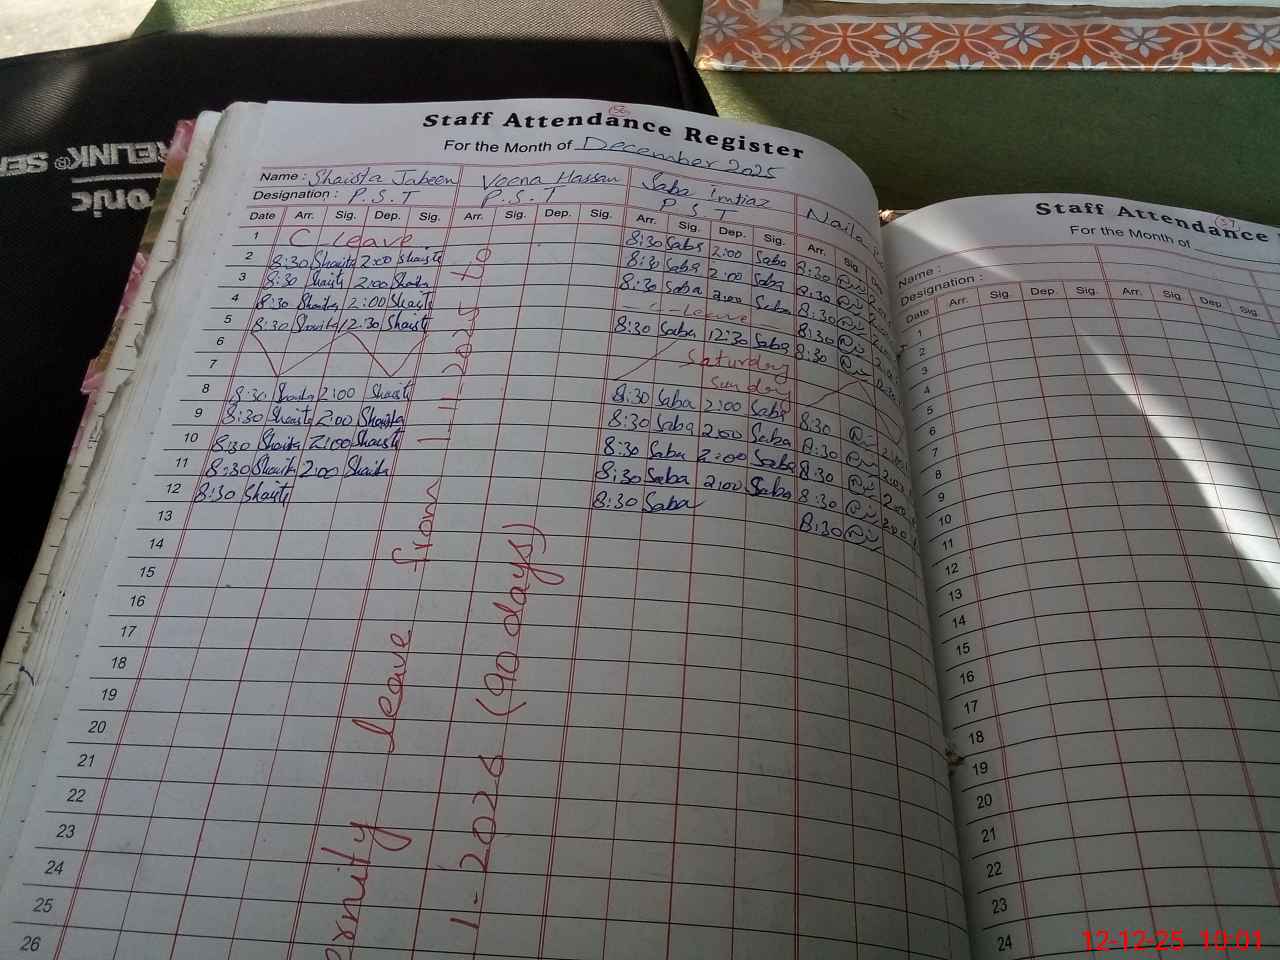 RELINK® SE
onic
150
Staff Attendance Register
For the Month of December 2025
Name : Shaista Jabeen Veena Hassan Saba Imtiaz Naila
Designation : P.S.T P.S.T P.S.T
Date Arr. Sig. Dep. Sig. Arr. Sig. Dep. Sig. Arr. Sig. Dep. Sig. Arr. Sig.
1 C leave 8:30 Saba 2:00 Saba 8:30
2 8:30 Shaista 2:00 Shaista 8:30 Saba 2:00 Saba 8:30
3 8:30 Shaista 2:00 Shaista 8:30 Saba 2:00 Saba 8:30
4 8:30 Shaista 2:00 Shaista C-leave 8:30
5 8:30 Shaista 12:30 Shaista 8:30 Saba 12:30 Saba 8:30
6 Saturday
7 Sunday
8 8:30 Shaista 2:00 Shaista 8:30 Saba 2:00 Saba 8:30
9 8:30 Shaista 2:00 Shaista 8:30 Saba 2:00 Saba 8:30
10 8:30 Shaista 2:00 Shaista 8:30 Saba 2:00 Saba 8:30
11 8:30 Shaista 2:00 Shaista 8:30 Saba 2:00 Saba 8:30
12 8:30 Shaista 8:30 Saba 8:30
13
14
15
16
17
18
19
20
21
22
23
24
25
26
ernity leave from 1-11-2025 to
1-2026 (90 days)
Staff Attendance
For the Month of
Name :
Designation :
Date Arr. Sig. Dep. Sig. Arr. Sig. Dep. Sig.
1
2
3
4
5
6
7
8
9
10
11
12
13
14
15
16
17
18
19
20
21
22
23
24
12-12-25 10:01